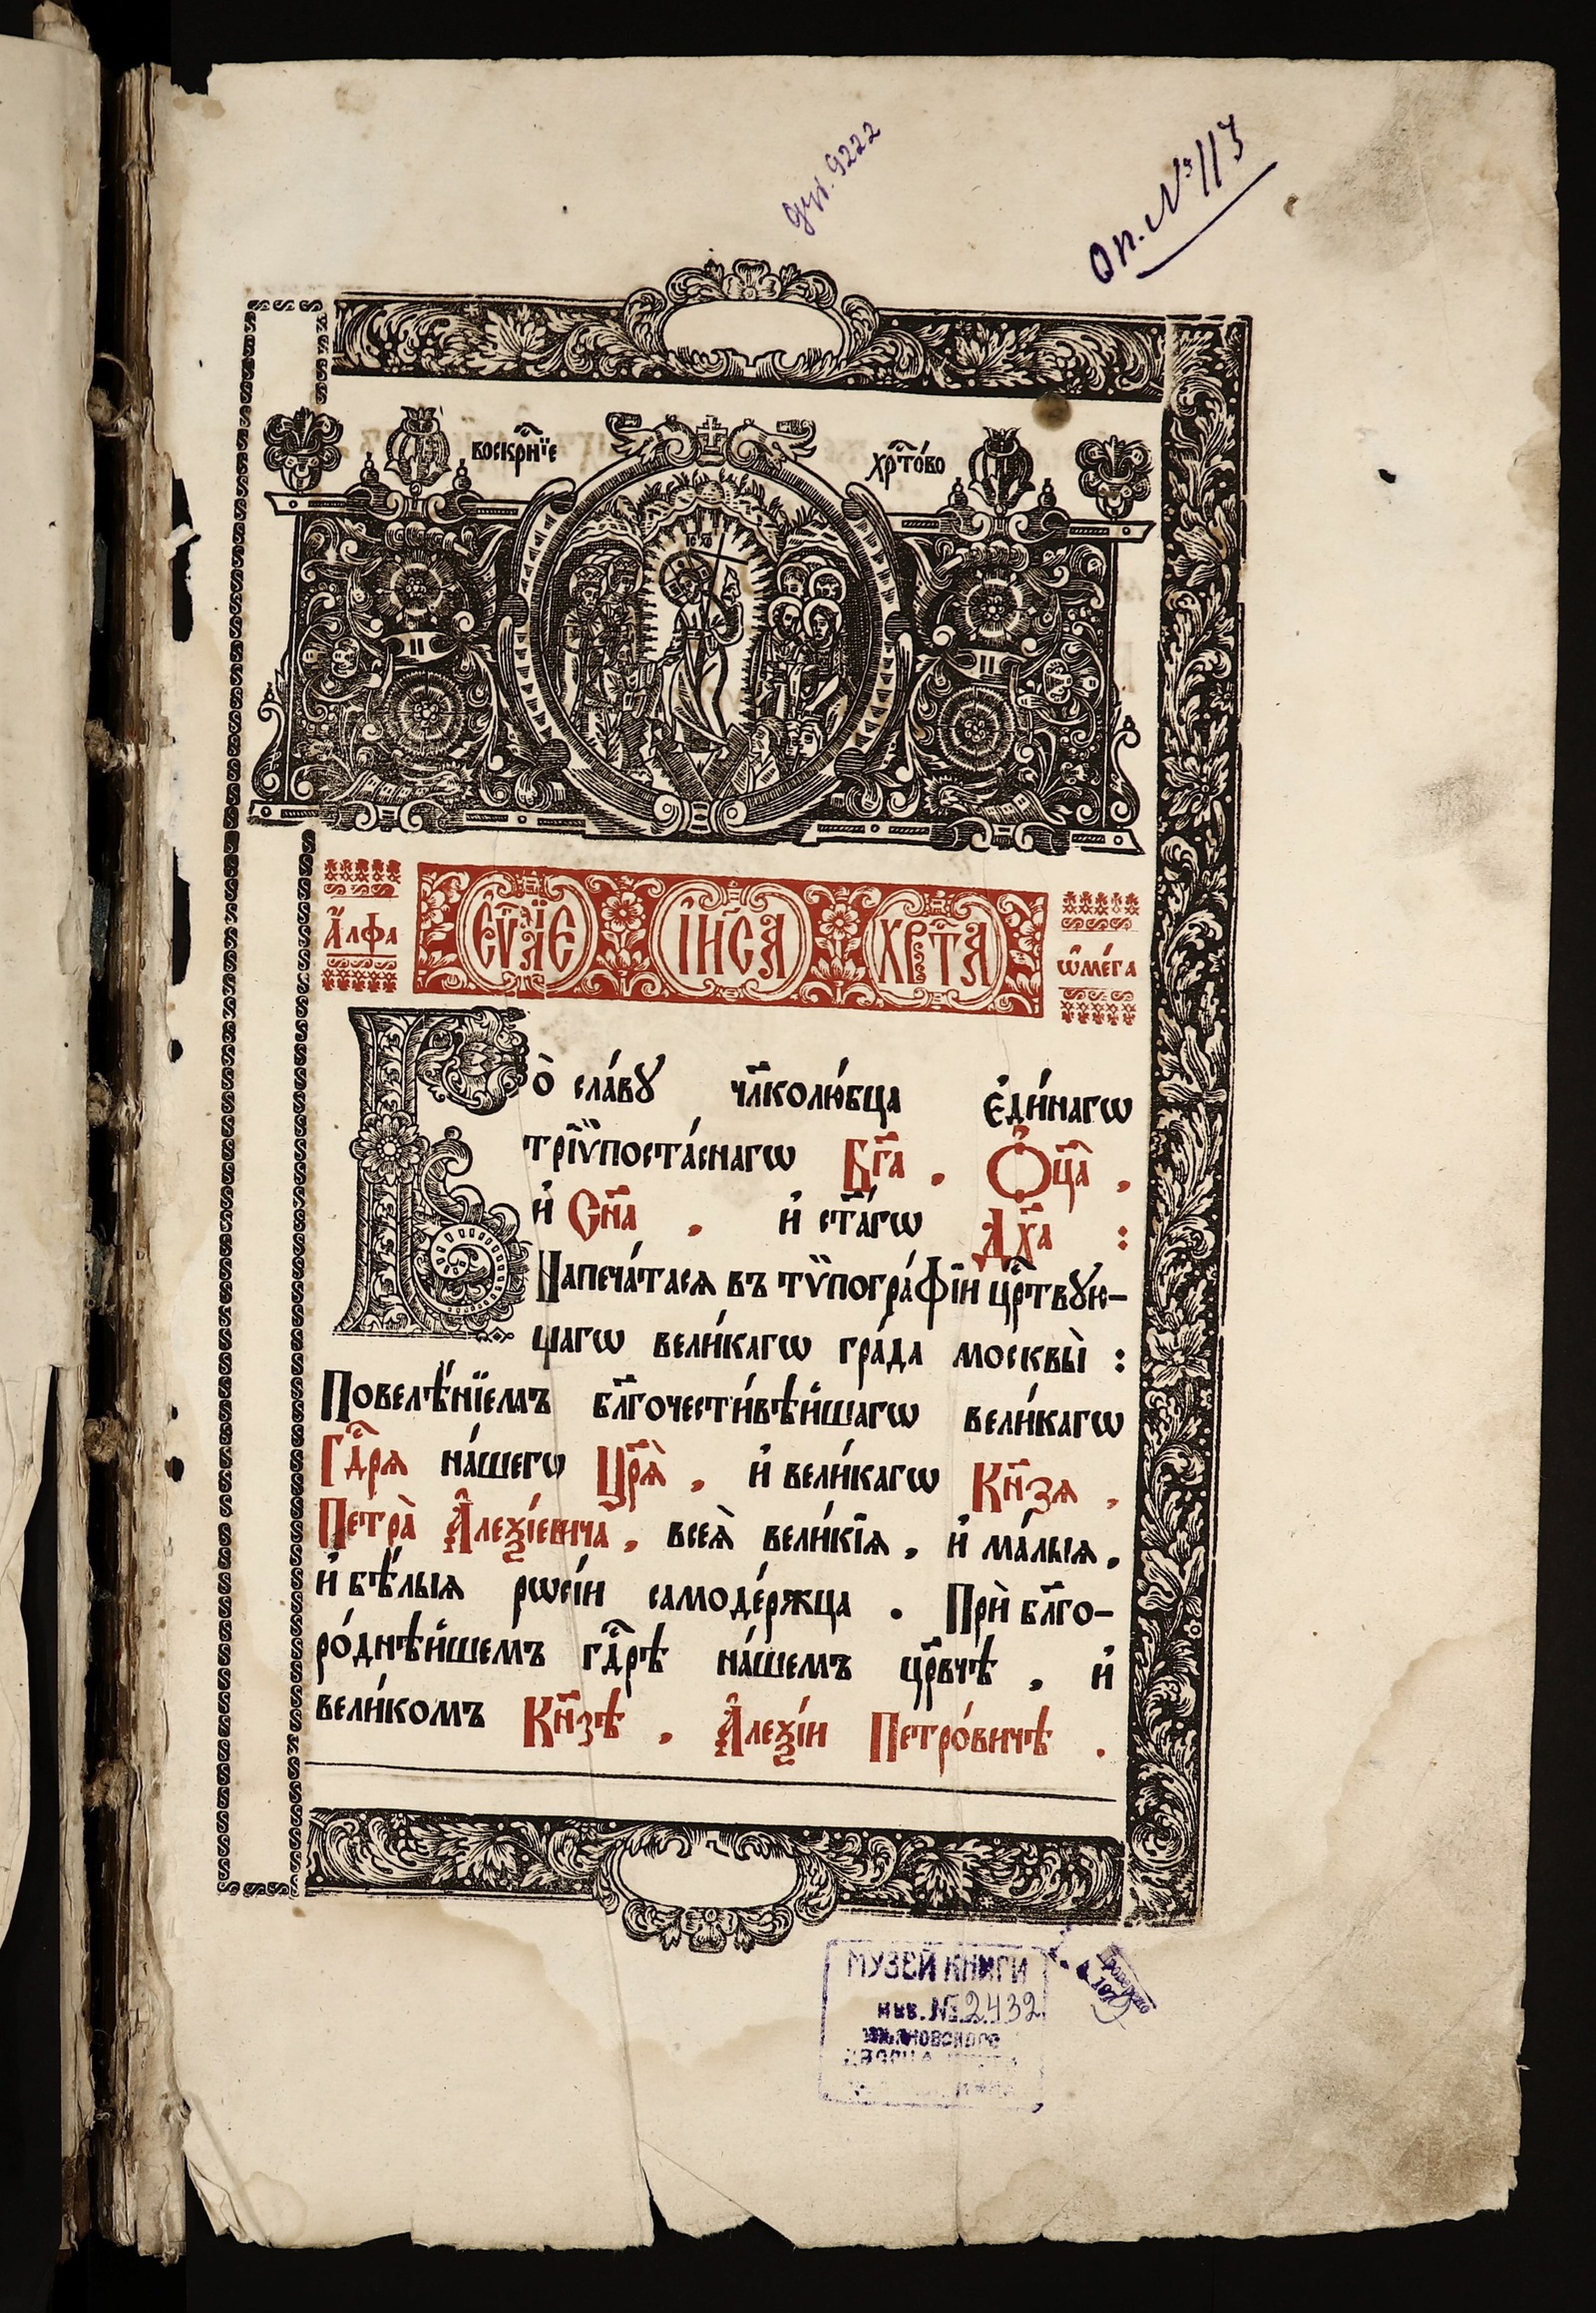 оп. № 113
воскр҃нїе хрⷭ҇то́во
І҃С Х҃С
А҆́лфа Є҆ѵⷢ҇лїе І҆и҃са Хрⷭ҇та̀ Ѡ҆ме́га
Во̀ сла́вꙋ чл҃колю́бца є҆ди́нагѡ
трїѵ̈поста́снагѡ Бг҃а , Ѻ҆ц҃а̀ ,
и҆ Сн҃а , и҆ ст҃а́гѡ Дх҃а :
Напеча́тасѧ въ тѵ̈погра́фїи црⷭ҇твꙋю-
щагѡ вели́кагѡ гра́да москвы̀ :
Повелѣ́нїемъ бл҃гочести́вѣйшагѡ вели́кагѡ
Гдⷭ҇рѧ на́шегѡ Цр҃ѧ̀ , и҆ вели́кагѡ Кн҃зѧ ,
Петра̀ А҆леѯі́евича , всеѧ̀ вели́кїѧ , и҆ ма́лыѧ ,
и҆ бѣ́лыѧ рѡсі́и самоде́ржца . Прѝ бл҃го-
ро́днѣйшемъ гдⷭ҇рѣ на́шемъ цр҃вчѣ , и҆
вели́комъ Кн҃зѣ , А҆леѯі́и Петро́вичѣ .
МУЗЕЙ КНИГИ
инв. № 2432